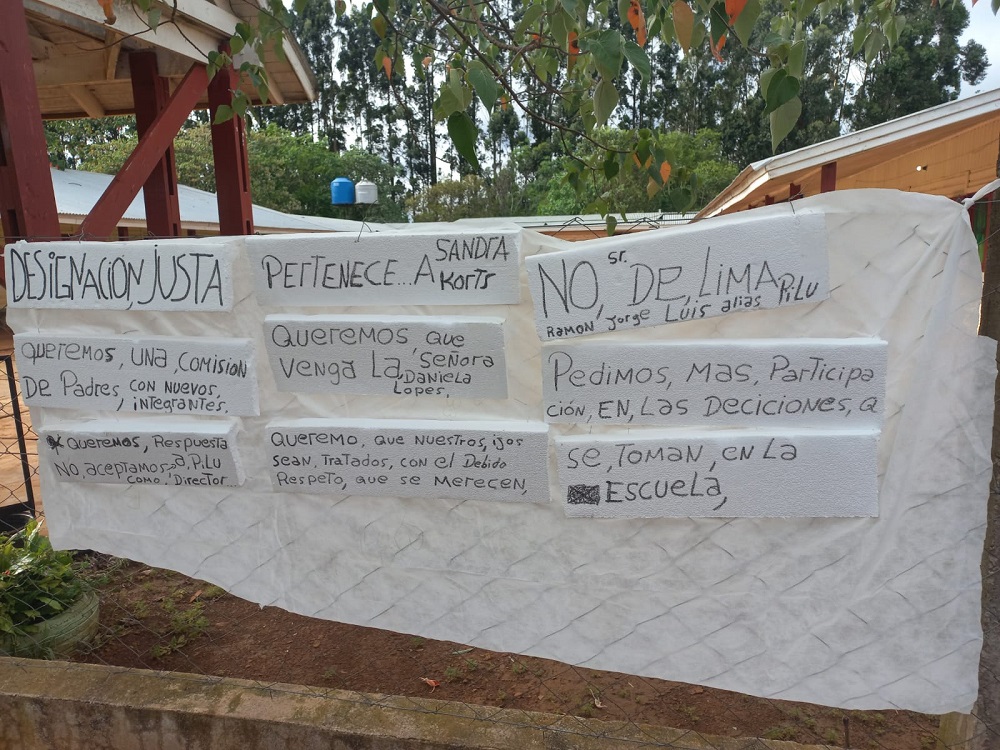 DESIGNACION, JUSTA
QUEREMOS, UNA, COMISION
DE Padres, CON NUEVOS,
, INTEGRANTES.
QUEREMOS, RESPUESTA
NO, aCEPTAMOS, a, PiLU
COMO, DIRECTOR
PERTENECE... A SANDRA
KORTS
QUEREMOS QUE
VENGA LA, SEÑORA
DANIELA
LOPES,
QUEREMO, QUE NUESTROS, iJOS
SEAN, TRATADOS, CON el DEBIDO
RESPETO, QUE SE MERECEN,
NO, sr. DE, LIMA
RAMON, Jorge Luis alias PiLU
PEDIMOS, MAS, PARTICIPA
CIÓN, EN, LAS DECICIONES, Q
SE, TOMAN, EN LA
ESCUELA,